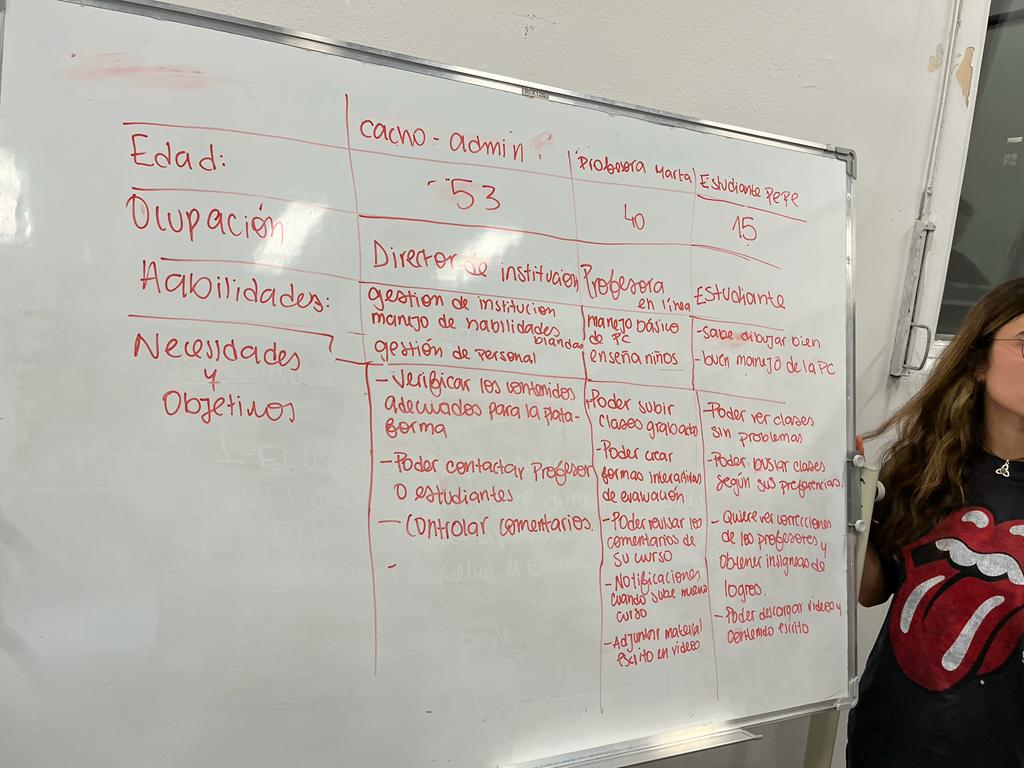 cacho - admin.
Profesora Marta
Estudiante PEPE
Edad:
53
40
15
Ocupación
Director de institucion
Profesora
en línea
Estudiante
Habilidades:
gestion de institucion
manejo de habilidades
blandas
gestión de personal
manejo básico
de PC
enseña niños
-sabe dibujar bien
-buen manejo de la PC
Necesidades
y
Objetivos
- Verificar los contenidos
adecuados para la plata-
forma
- Poder contactar Profesor
o estudiantes
- Controlar comentarios.
-
-Poder subir
clases grabadas
-Poder crear
formas interactivas
de evaluación
-Poder revisar los
comentarios de
su curso
-Notificaciones
cuando sube nuevo
curso
-Adjuntar material
escrito en video
-Poder ver clases
sin problemas
-Poder buscar clases
según sus preferencias.
- Quiere ver correcciones
de los profesores y
obtener insignias de
logros.
-Poder descargar videos y
contenido escrito